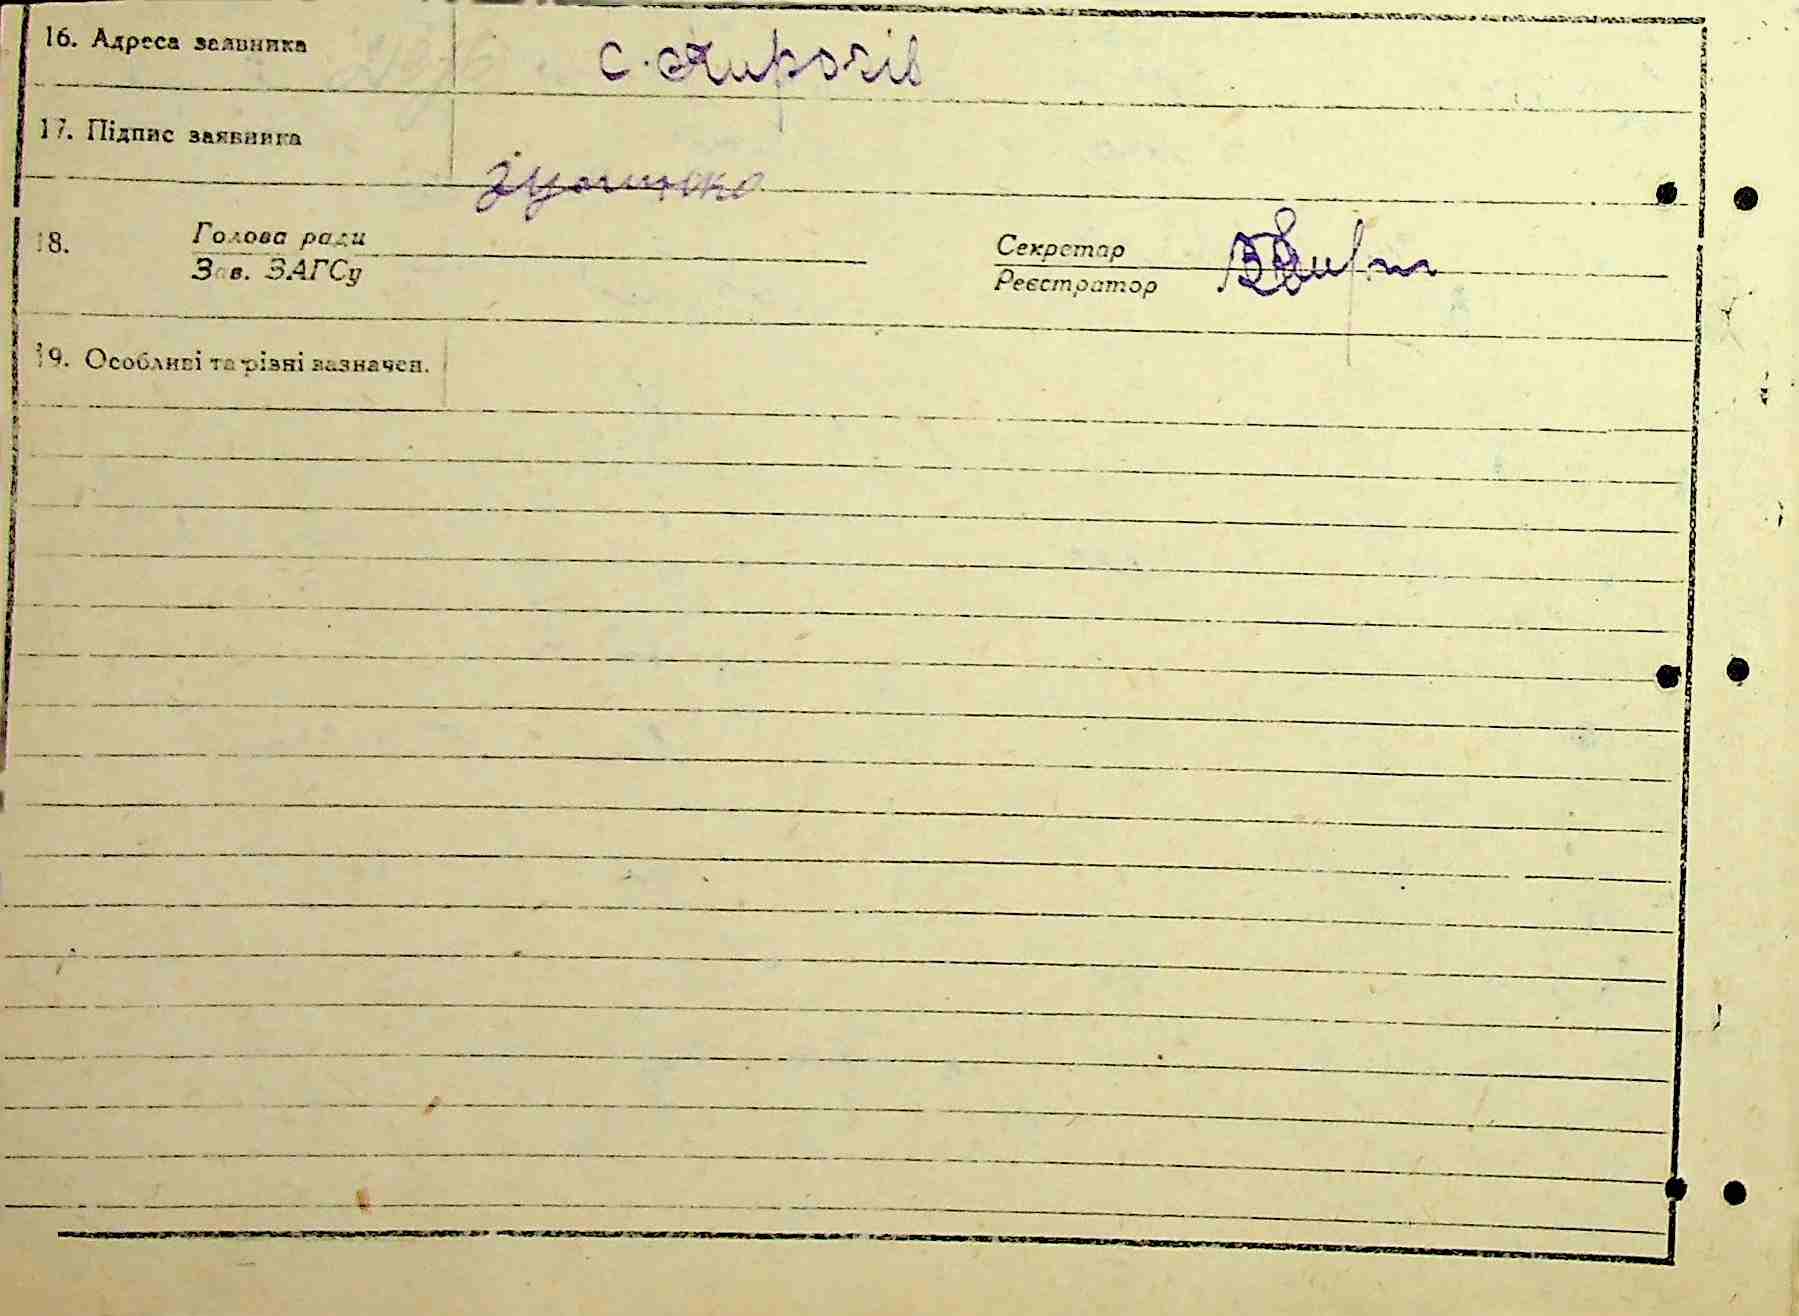 16. Адреса заявника с. Жирохів
17. Підпис заявника
18. Голова ради Секретар
Зав. ЗАГСу Реєстратор
19. Особливі та різні зазначен.